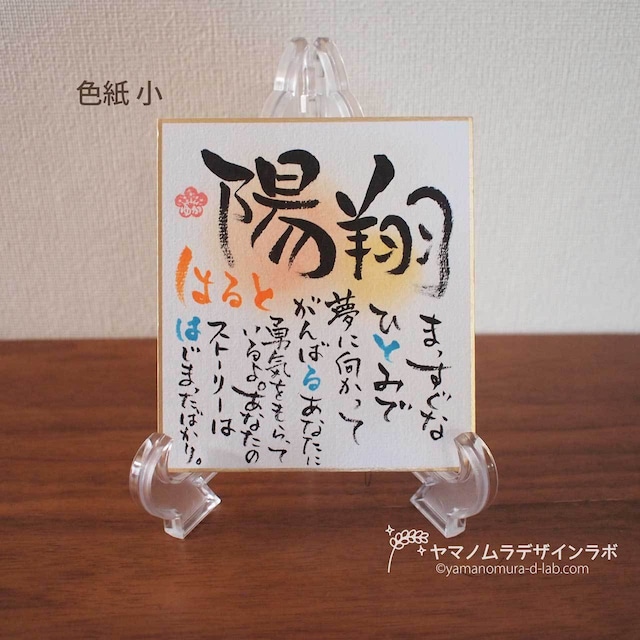 色紙 小
陽翔
はると
まっすぐな
ひとみで
夢に向かって
がんばるあなたに
勇気をもらって
いるよ。あなたの
ストーリーは
はじまったばかり。
ヤマノムラデザインラボ
©yamanomura-d-lab.com